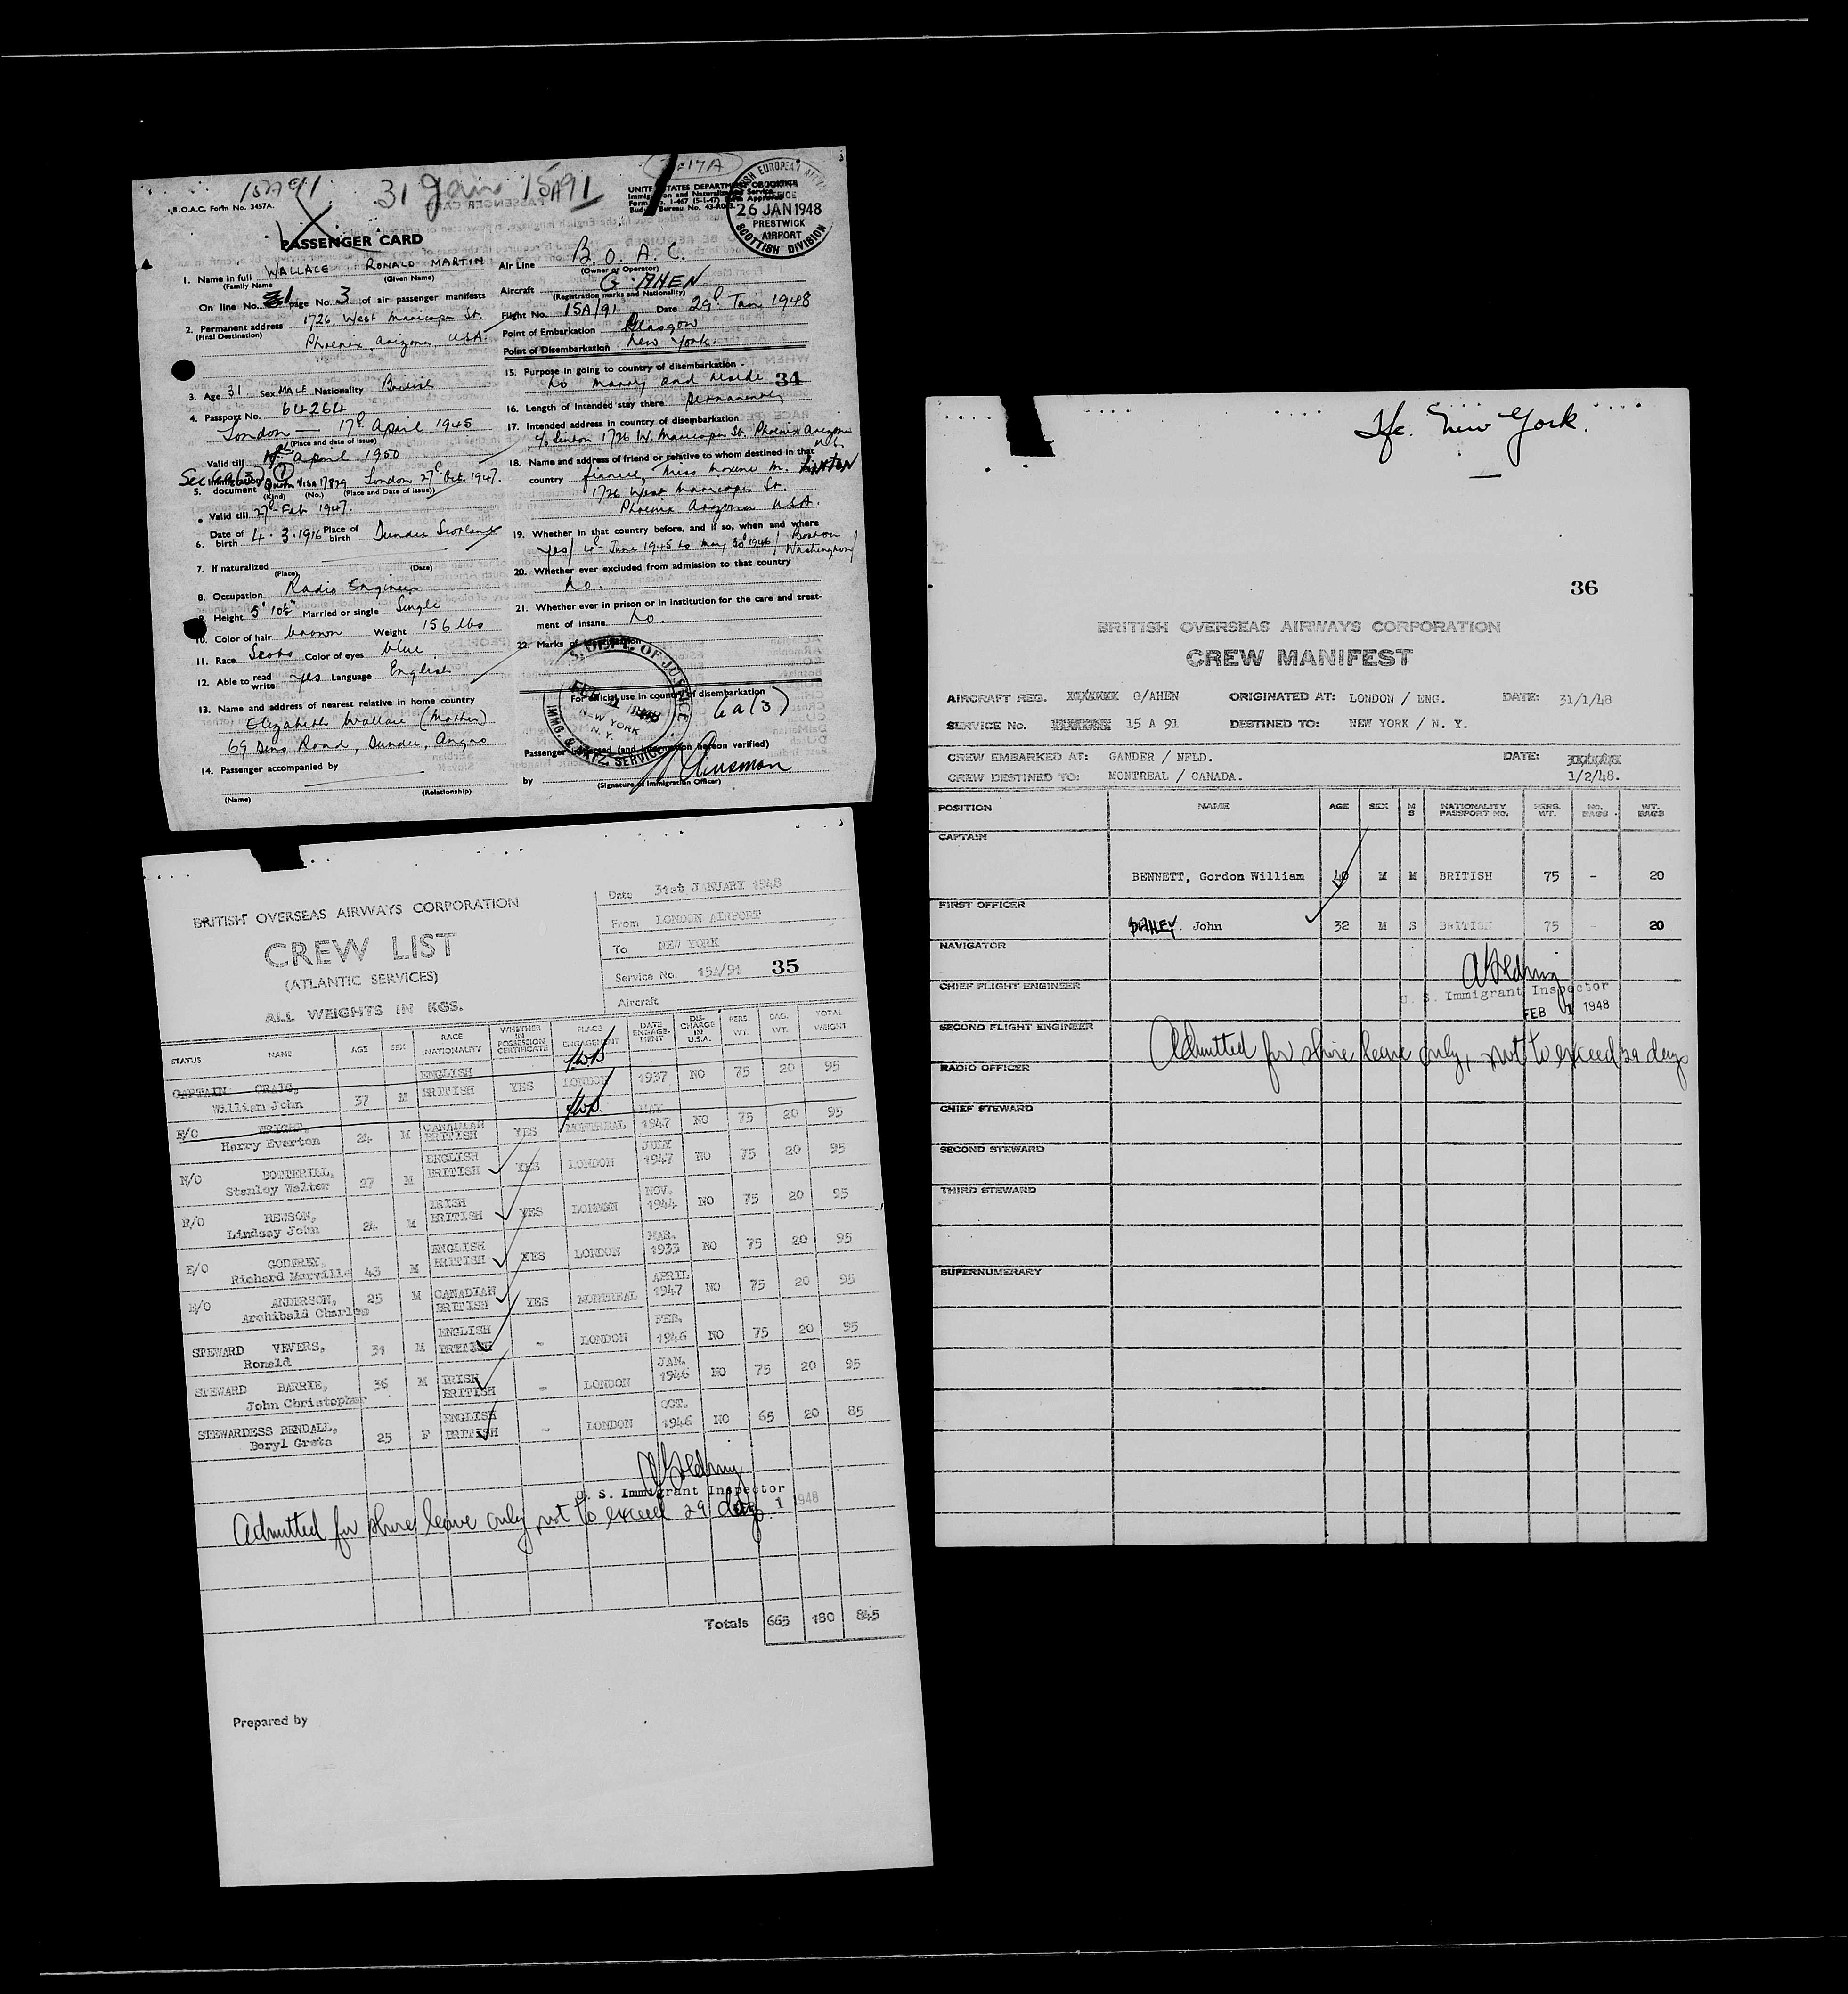 15A91
31 Jan 15A91
17A
B.O.A.C. Form No. 3457A.
UNITED STATES DEPARTMENT OF JUSTICE
Immigration and Naturalization Service
Form No. I-467 (5-1-47)
Budget Bureau No. 43-R063.
26 JAN 1948
PRESTWICK
AIRPORT
SCOTTISH DIVISION
PASSENGER CARD
1. Name in full WALLACE RONALD MARTIN
(Family Name (Given Name)
On line No. 1 page No. 3 of air passenger manifests
2. Permanent address 1726, West Maricopa St.
(Final Destination) Phoenix, Arizona, U.S.A.
3. Age 31 Sex MALE Nationality British
4. Passport No. 64264
London — 17th April 1945
(Place and date of issue)
Valid till April 1950
Sec 6a(3)
5. Immigration document Quota Visa 17829 London 27th Oct. 1947.
(Kind) (No.) (Place and Date of issue)
Valid till 27th Feb 1947.
6. Date of birth 4.3.1916 Place of birth Dundee Scotland
7. If naturalized
(Place) (Date)
8. Occupation Radio Engineer
9. Height 5' 10½" Married or single Single
10. Color of hair brown Weight 156 lbs
11. Race Scots Color of eyes blue
12. Able to read write yes Language English
13. Name and address of nearest relative in home country
Elizabeth Wallace (Mother)
69 Dens Road, Dundee, Angus
14. Passenger accompanied by
(Name) (Relationship)
Air Line B. O. A. C.
(Owner or Operator)
Aircraft G-AHEN
(Registration marks and Nationality)
Flight No. 15A/91 Date 29th Jan 1948
Point of Embarkation Glasgow
Point of Disembarkation New York.
15. Purpose in going to country of disembarkation
to marry and reside 34
16. Length of intended stay there permanently
17. Intended address in country of disembarkation
c/o Linton 1726 W. Maricopa St. Phoenix Arizona
18. Name and address of friend or relative to whom destined in that
country fiancee, Miss Maxene M. LINTON
1726 West Maricopa St.
Phoenix Arizona U.S.A.
19. Whether in that country before, and if so, when and where
yes/ June 1945 to May 30th 1946/ Boston
Washington/
20. Whether ever excluded from admission to that country
No.
21. Whether ever in prison or in institution for the care and treat-
ment of insane No.
22. Marks of identification
For official use in country of disembarkation
6a(3)
U.S. DEPT. OF JUSTICE
FEB 1 1948
NEW YORK
N. Y.
IMMIG. & NATZ. SERVICE
Passenger inspected (and information hereon verified)
by
(Signature of Immigration Officer)
BRITISH OVERSEAS AIRWAYS CORPORATION
CREW LIST
(ATLANTIC SERVICES)
ALL WEIGHTS IN KGS.
Date 31st JANUARY 1948
From LONDON AIRPORT
To NEW YORK
Service No. 15A/91 35
Aircraft
STATUS NAME AGE SEX RACE NATIONALITY WHETHER IN POSSESSION CERTIFICATE PLACE ENGAGEMENT DATE ENGAGE-MENT DIS-CHARGE IN U.S.A. PERS. WT. BAG. WT. TOTAL WEIGHT
CAPTAIN CRAIG, William John 37 M ENGLISH BRITISH YES LONDON 1937 NO 75 20 95
F/O WRIGHT, Harry Everton 24 M CANADIAN BRITISH YES MONTREAL MAY 1947 NO 75 20 95
N/O BOTTERILL, Stanley Walter 27 M ENGLISH BRITISH YES LONDON JULY 1947 NO 75 20 95
R/O HEWSON, Lindsay John 24 M IRISH BRITISH YES LONDON NOV. 1944 NO 75 20 95
E/O GODFREY, Richard Merville 43 M ENGLISH BRITISH YES LONDON MAR. 1933 NO 75 20 95
E/O ANDERSON, Archibald Charles 25 M CANADIAN BRITISH YES MONTREAL APRIL 1947 NO 75 20 95
STEWARD VEVERS, Ronald 31 M ENGLISH BRITISH - LONDON FEB. 1946 NO 75 20 95
STEWARD BARRIE, John Christopher 36 M IRISH BRITISH - LONDON JAN. 1946 NO 75 20 95
STEWARDESS BENDALL, Beryl Greta 25 F ENGLISH BRITISH - LONDON OCT. 1946 NO 65 20 85
U. S. Immigrant Inspector
1 1948
Admitted for shore leave only, not to exceed 29 days.
Totals 665 180 845
Prepared by
New York.
36
BRITISH OVERSEAS AIRWAYS CORPORATION
CREW MANIFEST
AIRCRAFT REG. G/AHEN ORIGINATED AT: LONDON / ENG. DATE: 31/1/48
SERVICE No. 15 A 91 DESTINED TO: NEW YORK / N. Y.
CREW EMBARKED AT: GANDER / NFLD. DATE:
CREW DESTINED TO: MONTREAL / CANADA. 1/2/48.
POSITION NAME AGE SEX M S NATIONALITY PASSPORT NO. PERS. WT. NO. BAGS WT. BAGS
CAPTAIN
BENNETT, Gordon William 40 M M BRITISH 75 - 20
FIRST OFFICER
John 32 M S BRITISH 75 - 20
NAVIGATOR
CHIEF FLIGHT ENGINEER
U. S. Immigrant Inspector
FEB 1 1948
SECOND FLIGHT ENGINEER
Admitted for shore leave only, not to exceed 29 days
RADIO OFFICER
CHIEF STEWARD
SECOND STEWARD
THIRD STEWARD
SUPERNUMERARY